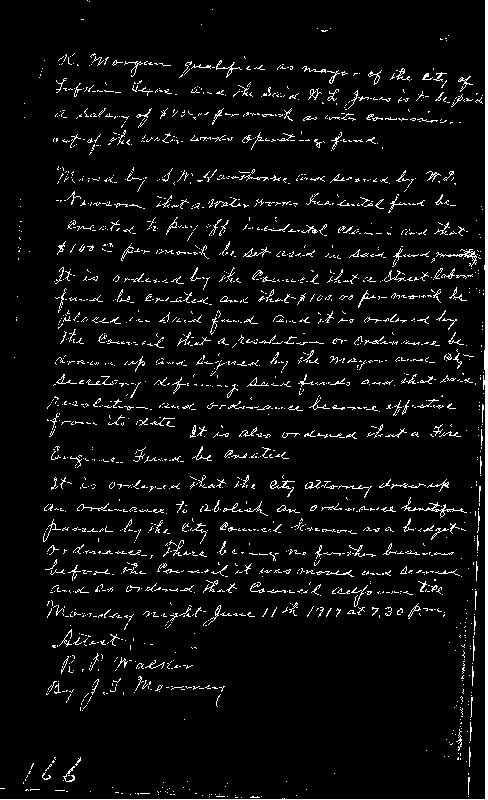 K. Morgan qualified as mayor of the city of
Lufkin Texas. and the said W. L. Jones is to be paid
a salary of $75.00 per month as water commissioner
out of the water works operating fund.
Moved by S. W. Hawthorne and second by W. D.
Newsom that a Water Works Incidental fund be
created to pay off incidental claims and that
$100 00 per month be set asid in said fund, monthly
It is ordered by the Council that a Street labor
fund be created and that $100.00 per month be
placed in said fund and it is ordered by
the Council that a resolution or ordinance be
drawn up and signed by the mayor and city
Secretary defining said funds and that said
resolution and ordinance become effective
from its date It is also ordered that a Fire
Engine Fund be created
It is ordered that the city attorney draw up
an ordinance to abolish an ordinance heretofore
passed by the City Council known as a budget
ordinance, There being no further business
before the Council it was moved and second
and so ordered that Council adjourn till
Monday night June 11th 1917 at 7,30 pm.
Attest:
R. P. Walker
By J. T. Meroney
166